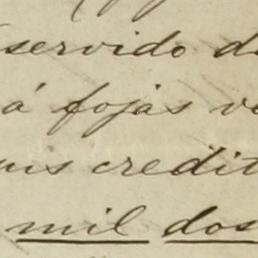 servido d
á fojas v
mis credit
mil dos